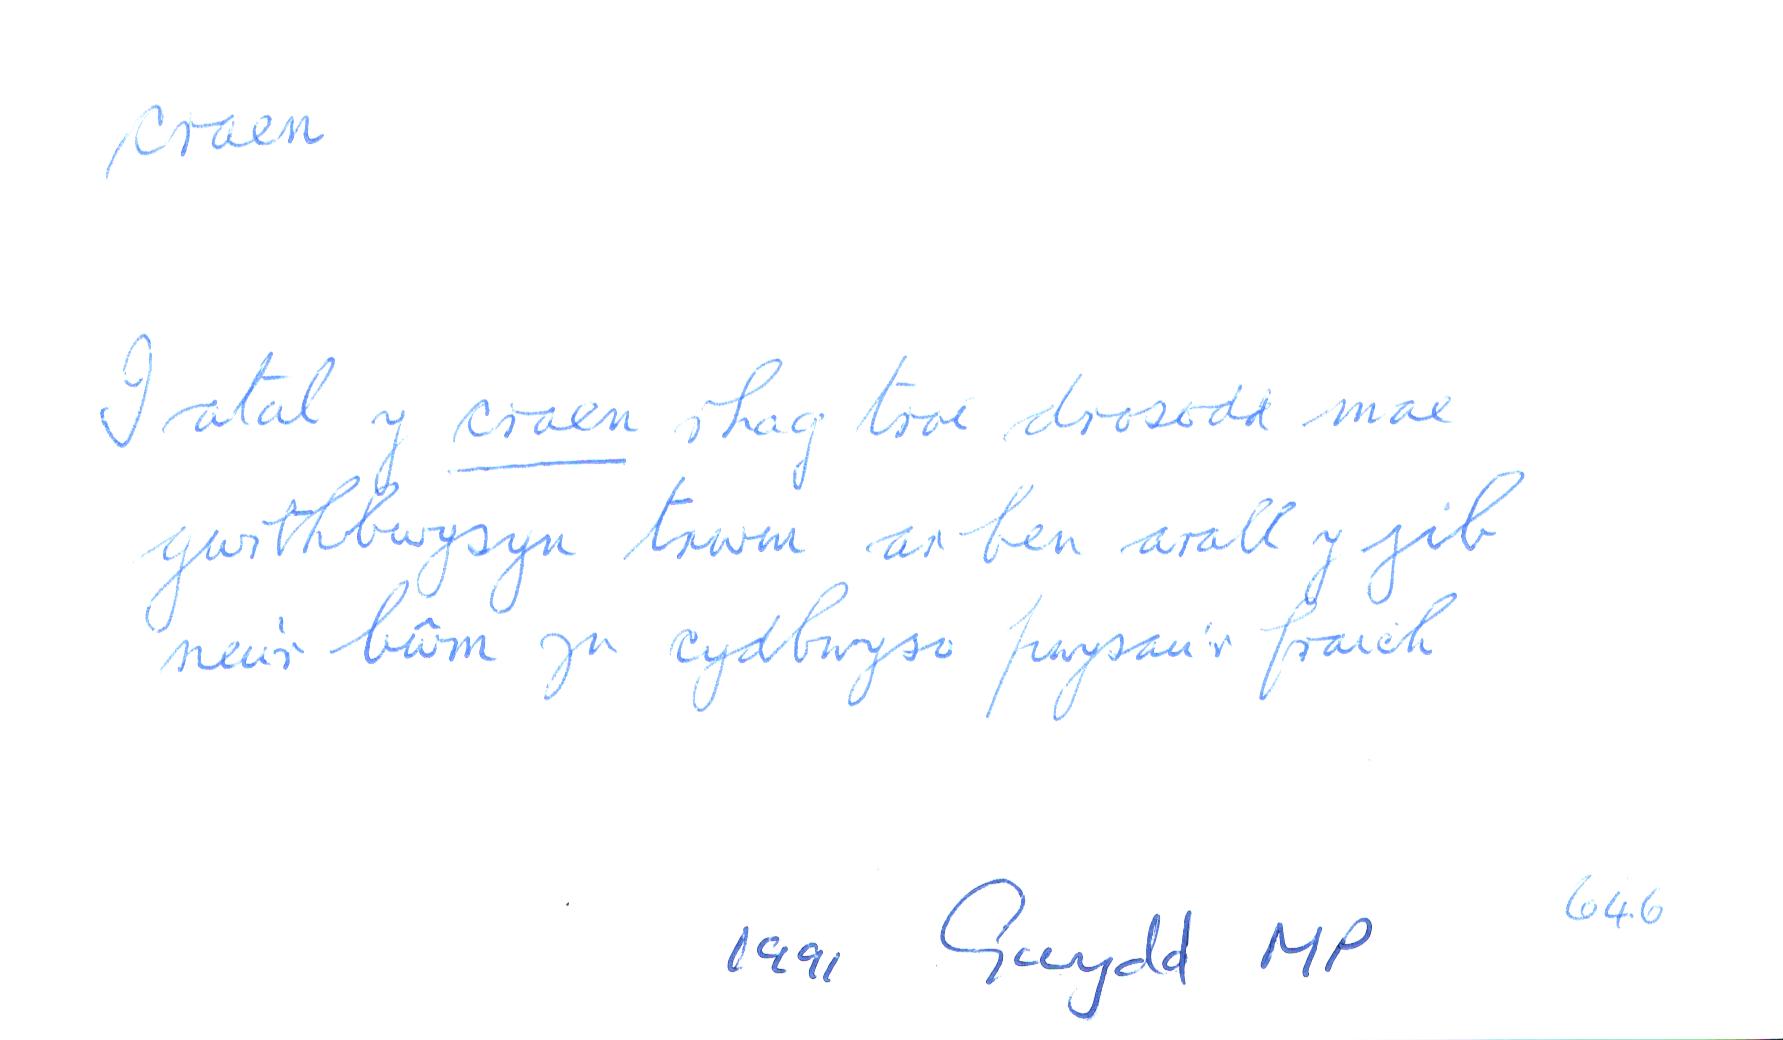 craen
I atal y craen rhag troi drosodd mae
gwrthbwysyn trwm ar ben arall y jib
neu'r bŵm yn cydbwyso pwysau'r fraich
646
1991 Gwydd MP